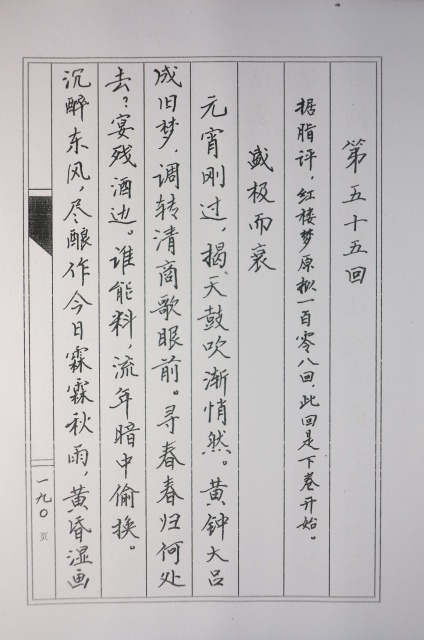 第五十五回
据脂评，红楼梦原拟一百零八回，此回是下卷开始。
盛极而衰
元宵刚过，揭天鼓吹渐悄然。黄钟大吕
成旧梦，调转清商歌眼前。寻春春归何处
去？宴残酒边。谁能料，流年暗中偷换。
沉醉东风，尽酿作今日霖霖秋雨，黄昏湿画
一九〇页